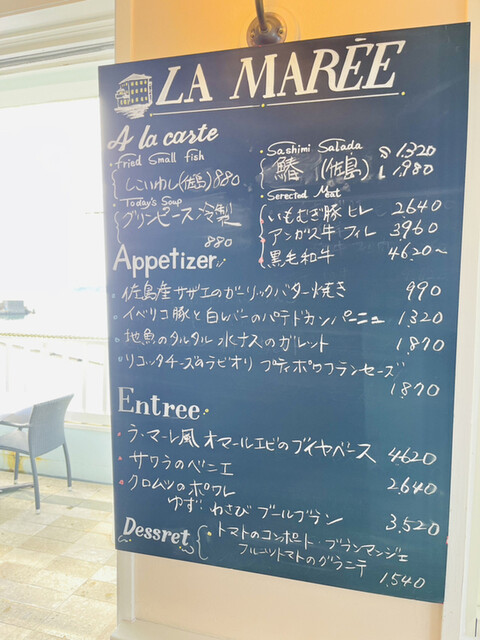 LA MARÉE
A la carte
・Fried Small fish
しこいわし(佐島) 880
・Today's Soup
グリンピース冷製
880
・Sashimi Salada
鰆 (佐島) S 1,320
L 1,980
・Serected Meat
・いもむぎ豚ヒレ 2640
・アンガス牛フィレ 3,960
・黒毛和牛 4620～
Appetizer
・佐島産サザエのガーリックバター焼き 990
・イベリコ豚と白レバーのパテドカンパーニュ 1,320
・地魚のタルタル 水ナスのガレット 1,870
・リコッタチーズのラビオリ プティポワフランセーズ
1,870
Entree
・ラ・マーレ風 オマールエビのブイヤベース 4620
・サワラのベニエ 2,640
・クロムツのポワレ
ゆず わさび ブールブラン 3,520
Dessret
・トマトのコンポート・ブランマンジェ
フルーツトマトのグラニテ
1,540